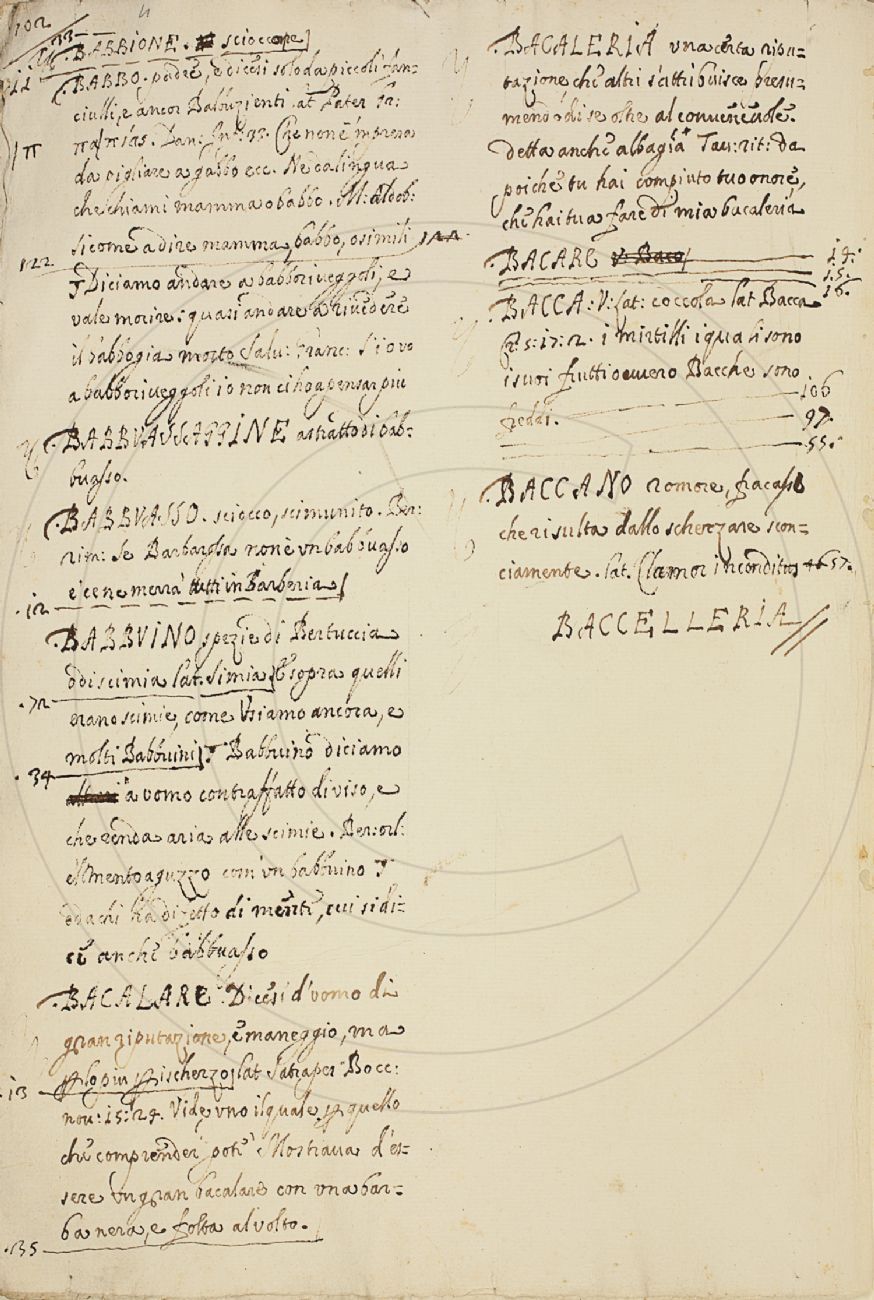 102
33
BABBIONE. scioccone]
11
BABBO. padre, e dicesi solo da piccoli fan=
ciulli, e ancor Balbuzienti. lat. Pater
παππίας. Dan: Inf: 32. Che non è impresa
da pigliare a gabbo ecc. Ne da lingua
che chiami mamma o babbo. M: aldob:
si come a dire mamma, babbo, o simili
122
Diciamo andare a babboriveggoli, e
vale morire: quasi andare a rivedere
il babbo gia morto Salu: Franc: S'io vo
a babboriveggoli io non ci ho a pensar piu
BABBUASSAGGINE astratto di bab=
buasso.
BABBVASSO. sciocco, scimunito. Ber:
rim: Se Barbarossa non è un babbuasso
e' ce ne merrà tutti in Barberia
12
BABBVINO spezie di Bertuccia
o di scimia lat. Simia E sopra quelli
72
erano scimie, come Usiamo ancora, e
molti Babbuini Babbuino diciamo
34
a vomo contraffatto di viso, e
che renda aria alle scimie. Ber: orl:
e'l mento aguzzo com' un babbuino
o da chi ha difetto di mente, cui si di=
ce anche babbuasso
BACALARE Dicesi d'vomo di
gran riputazione, e maneggio, ma
p lo piu p ischerzo lat Satrapes Bocc:
13
nov: 15: 24. Vide uno il quale, p quello
che comprender potè Mostraua d'es=
sere un gran bacalare con una bar=
ba nera, e folta al volto.
135
BACALERIA vna certa ripu=
tazione che altri s'attribuisce presu=
mendo di se oltre al conueneuole.
detta anche albagia Tau: rit: da
poiche tu hai compiuto tuo onore,
che hai tu a fare di mia bacaleria
BACARE V: Baco
14:
15:
16:
BACCA: V: lat: coccola lat Bacca
Cr: 5: 17: 2. i mirtilli i quali sono
i suoi frutti ouuero Bacche sono
freddi.
106
97
55:
BACCANO romore, fracasso
che risulta dallo scherzare scon=
ciamente. lat. Clamor inconditus 57.
BACCELLERIA